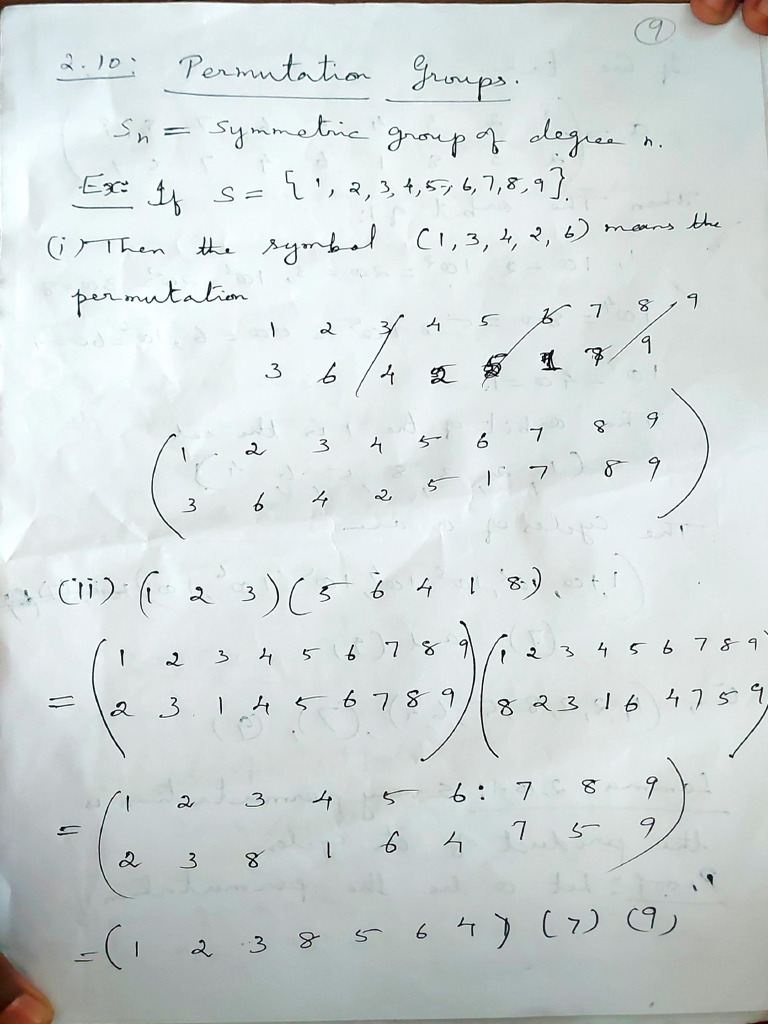 9
2.10: Permutation Groups.
Sn = Symmetric group of degree n.
Ex: If S = {1, 2, 3, 4, 5, 6, 7, 8, 9}.
(i) Then the symbol (1, 3, 4, 2, 6) means the
permutation
1 2 3 4 5 6 7 8 9
3 6 4 2 5 1 7 9
(1 2 3 4 5 6 7 8 9
3 6 4 2 5 1 7 8 9)
(ii) (1 2 3)(5 6 4 1 8).
= (1 2 3 4 5 6 7 8 9) (1 2 3 4 5 6 7 8 9
2 3 1 4 5 6 7 8 9) (8 2 3 1 6 4 7 5 9)
= (1 2 3 4 5 6: 7 8 9
2 3 8 1 6 4 7 5 9)
= (1 2 3 8 5 6 4) (7) (9)